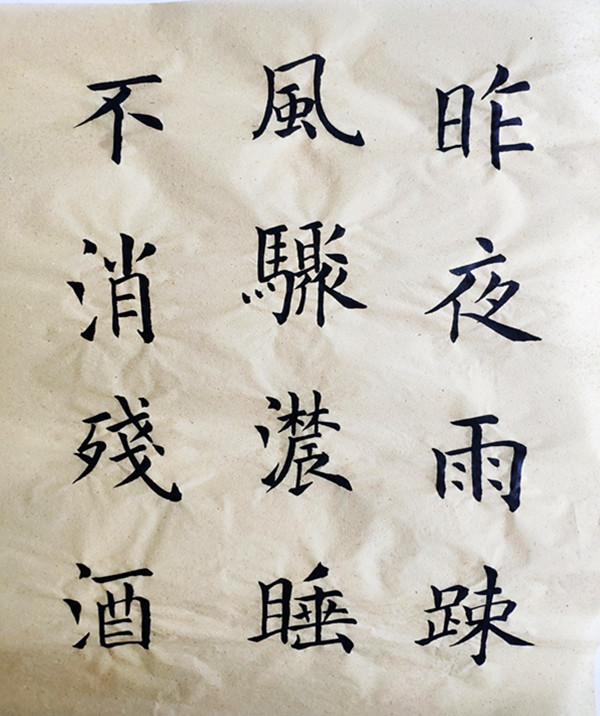 昨夜雨踈
風驟濃睡
不消殘酒